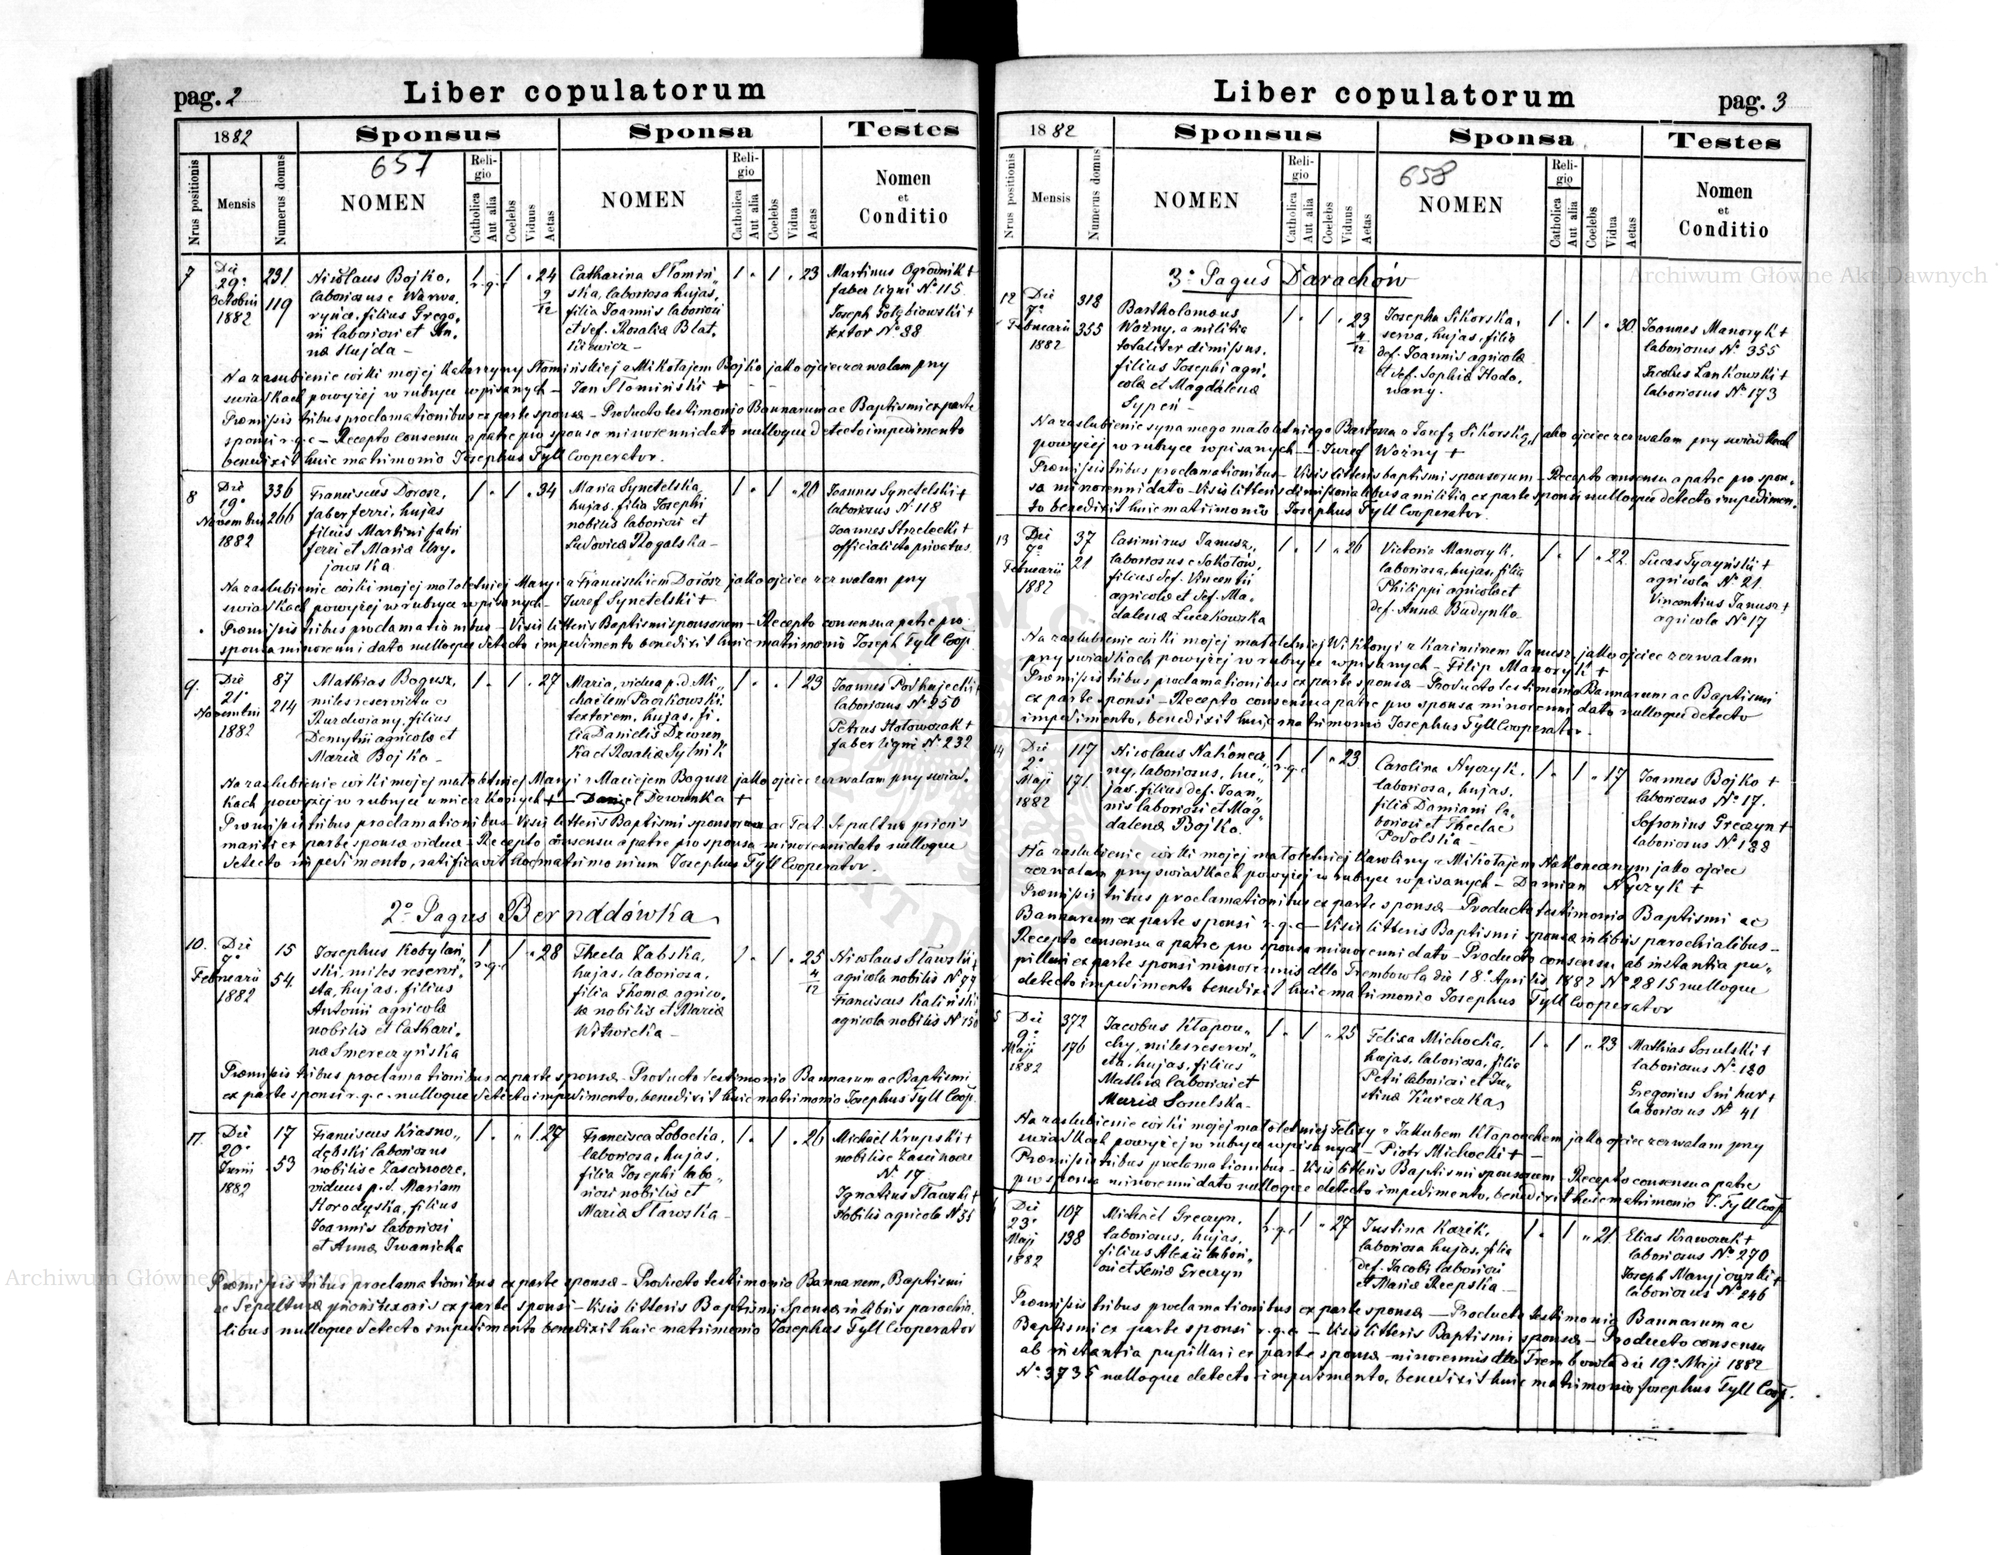 pag. 2
Liber copulatorum
1882
Sponsus
Sponsa
Testes
Nrus positionis
Mensis
Numerus domus
657
NOMEN
Religio
Catholica
Aut alia
Coelebs
Viduus
Aetas
NOMEN
Religio
Catholica
Aut alia
Coelebs
Vidua
Aetas
Nomen
et
Conditio
7 Die 29° Octobris 1882
291
119
Nicolaus Bojko,
laboriosus e Warwa,
rynce, filius Grego,
rii laboriosi et An,
næ Hujda –
1 r.g.c 1 . 24 9/12
Catharina Słomiń,,
ska, laboriosa hujas,
filia Joannis laboriosi
et def. Rosaliæ Blat,
kiewicz –
1 . 1 . 23
Martinus Ogrodnik +
faber ligni N° 115
Joseph Gołębiowski +
textor N° 38
Na zaślubienie córki mojej Katarzyny Słomińskiej z Mikołajem Bojko jako ojciec zezwalam przy
świadkach powyżej w rubryce wpisanych – Jan Słomiński +
Præmissis tribus proclamationibus ex parte sponsæ – Producto testimonio Bannarum ac Baptismi ex parte
sponsi r.g.c – Recepto consensu a patre pro sponsa minorenni dato nulloque detecto impedimento
benedixit huic matrimonio Josephus Tyll Cooperator.
8 Die 19° Novembris 1882
336
266
Franciscus Dorosz,
faber ferri, hujas
filius Martini fabri
ferri et Mariæ Hry,
jowska.
1 . 1 . 34
Maria Synetelska,
hujas, filia Josephi
nobilis laboriosi et
Ludovicæ Rogalska –
1 . 1 . 20
Joannes Synetelski +
laboriosus N° 118
Joannes Strzelecki +
officialista privatus
Na zaślubienie córki mojej małoletniej Maryi z Franciszkiem Dorosz jako ojciec zezwalam przy
świadkach powyżej w rubryce wpisanych – Józef Synetelski +
Præmissis tribus proclamationibus – Visis litteris Baptismi sponsorum – Recepto consensu a patre pro
sponsa minorenni dato nulloque detecto impedimento benedixit huic matrimonio Joseph Tyll Coop.
9. Die 21° Novembris 1882
87
214
Mathias Bogusz,
miles reservista e
Burdwiany, filius
Demytrii agricolæ et
Mariæ Bojko –
1 . 1 . 27
Maria, vidua p.d. Mi,,
chaelem Paczkowski
textorem, hujas, fi,
lia Danielis Dzwon,
ka et Rosaliæ Sytnik
1 . . 1 23
Joannes Podhujecki +
laboriosus N° 250
Petrus Hołowczak +
faber ligni N° 232
Na zaślubienie córki mojej małoletniej Maryi z Maciejem Bogusz jako ojciec zezwalam przy świad,
kach powyżej w rubryce umieszczonych + – Daniel Dzwonka +
Præmissis tribus proclamationibus – Visis litteris Baptismi sponsorum ac Test. Sepulturæ prioris
mariti ex parte sponsæ viduæ – Recepto consensu a patre pro sponsa minorenni dato nulloque
detecto impedimento, ratificavit hoc matrimonium Josephus Tyll Cooperator.
2° Pagus Bernadówka
10. Die 7° Februarii 1882
15
54.
Josephus Kobylań,
ski, miles reservi,
sta, hujas, filius
Antonii agricolæ
nobilis et Cathari,
næ Smereczyńska
1 r.g.c 1 . 28
Thecla Zabska,
hujas, laboriosa,
filia Thomæ agrico,
læ nobilis et Mariæ
Witwicka –
1 . 1 . 25 4/12
Nicolaus Stawski +
agricola nobilis N° 99
Franciscus Kaliński
agricola nobilis N° 150
Præmissis tribus proclamationibus ex parte sponsæ – Producto testimonio Bannarum ac Baptismi
ex parte sponsi r.g.c. nulloque detecto impedimento, benedixit huic matrimonio Josephus Tyll Coop.
11. Die 20° Junii 1882
17
53
Franciscus Krasno,,
dębski laboriosus
nobilis e Zascinocze,
viduus p.d. Mariam
Horodyska, filius
Joannis laboriosi
et Annæ Iwanicka
1 . „ 1. 27
Francisca Łobocka,
laboriosa, hujas,
filia Josephi labo,,
riosi nobilis et
Mariæ Stawska –
1 . 1 . 26
Michaël Krupski +
nobilis e Zascinocze
N° 17
Ignatius Stawski +
Nobilis agricola N° 35
Præmissis tribus proclamationibus ex parte sponsæ – Producto testimonio Bannarum, Baptismi
ac Sepulturæ prioris uxoris ex parte sponsi – Visis litteris Baptismi Sponsæ in libris parochia,
libus nulloque detecto impedimento benedixit huic matrimonio Josephus Tyll Cooperator
Liber copulatorum
pag. 3
1882
Sponsus
Sponsa
Testes
Nrus positionis
Mensis
Numerus domus
NOMEN
Religio
Catholica
Aut alia
Coelebs
Viduus
Aetas
658
NOMEN
Religio
Catholica
Aut alia
Coelebs
Vidua
Aetas
Nomen
et
Conditio
3° Pagus Darachów
12 Die 7° Februarii 1882
318
355
Bartholomæus
Woźny, a militia
totaliter dimissus,
filius Josephi agri,
colæ et Magdalenæ
Sypeń –
1 . 1 . 23 4/12
Josepha Sikorska,
serva, hujas, filia
def. Joannis agricolæ
et def. Sophiæ Hodo,
wany.
1 . 1 . 30
Joannes Manoryk +
laboriosus N° 355
Jacobus Lankowski +
laboriosus N° 173
Na zaślubienie syna mego małoletniego Bartosza z Józefą Sikorską, jako ojciec zezwalam przy świadkach
powyżej w rubryce wpisanych – Józef Woźny +
Præmissis tribus proclamationibus – Visis litteris baptismi sponsorum – Recepto consensu a patre pro spon,
so minorenni dato – Visis litteris dimissionalibus a militia ex parte sponsi nulloque detecto impedimen,
to benedixit huic matrimonio. Josephus Tyll Cooperator.
13 Die 7° Februarii 1882
37
21
Casimirus Janusz,
laboriosus e Sokołów,
filius def. Vincentii
agricolæ et def. Ma,
dalenæ Luczkowska
1 . 1 „ 26
Victoria Manoryk,
laboriosa, hujas, filia
Philippi agricolæ et
def. Annæ Budynko
1 . 1 „ 22.
Lucas Tyczyński +
agricola N° 21.
Vincentius Janusz +
agricola N° 17
Na zaślubienie córki mojej małoletniej Wiktoryi z Kazimirem Janusz, jako ojciec zezwalam
przy świadkach powyżej w rubryce wpisanych – Filip Manoryk +
Præmissis tribus proclamationibus ex parte sponsæ – Producto testimonio Bannarum ac Baptismi
ex parte sponsi – Recepto consensu a patre pro sponsa minorenni dato nulloque detecto
impedimento, benedixit huic matrimonio Josephus Tyll Cooperator.
14 Die 2° Maji 1882
117
171
Nicolaus Nakonecz,
ny, laboriosus, hu,,
jas, filius def. Joan,,
nis laboriosi et Mag,
dalenæ Bojko.
1 r.g.c 1 „ 23
Carolina Nyczyk,
laboriosa, hujas,
filia Damiani la,
boriosi et Theclae
Podolska –
1 . 1 „ 17
Joannes Bojko +
laboriosus N° 17.
Sofronius Greczyn +
laboriosus N° 188
Na zaślubienie córki mojej małoletniej Karoliny z Mikołajem Nakonecznym jako ojciec
zezwalam przy świadkach powyżej w rubryce wpisanych – Damian Nyczyk +
Præmissis tribus proclamationibus ex parte sponsæ – Producto testimonio Baptismi ac
Bannarum ex parte sponsi r.g.c – Visis litteris Baptismi sponsæ in libris parochialibus –
Recepto consensu a patre pro sponsa minorenni dato – Producto consensu ab instantia pu,,
pillari ex parte sponsi minorennis dtto Trembowla die 18° Aprilis 1882 N° 2815 nulloque
detecto impedimento benedixit huic matrimonio Josephus Tyll Cooperator
5 Die 9° Maji 1882
372
176
Jacobus Kłapou,,
chy, miles reservi,,
sta, hujas, filius
Mathiæ laboriosi et
Mariæ Sosulska –
1 . 1 „ 25
Felixa Michocka,
hujas, laboriosa, filia
Petri laboriosi et Ju,,
stinæ Kureczka,
1 . 1 „ 23
Mathias Sosulski +
laboriosus N° 130
Gregorius Snihur +
laboriosus N° 41
Na zaślubienie córki mojej małoletniej Felixy z Jakubem Kłapouchem jako ojciec zezwalam przy
świadkach powyżej w rubryce wpisanych – Piotr Michocki + –
Præmissis tribus proclamationibus – Visis litteris Baptismi sponsorum – Recepto consensu a patre
pro sponsa minorenni dato nulloque detecto impedimento, benedixit huic matrimonio J. Tyll Coop.
Die 23° Maji 1882
107
198
Michaël Greczyn,
laboriosus, hujas,
filius Alexii labori,
osi et Xeniæ Greczyn
1 r.g.c 1 „ 27
Justina Kozik,
laboriosa hujas, filia
def. Jacobi laboriosi
et Mariæ Rzepska –
1 . 1 „ 21.
Elias Krawczak +
laboriosus N° 270
Joseph Maryjowski +
laboriosus N° 246
Præmissis tribus proclamationibus ex parte sponsæ – Producto testimonio Bannarum ac
Baptismi ex parte sponsi r.g.c. – Visis litteris Baptismi sponsæ – Producto consensu
ab instantia pupillari ex parte sponsæ minorennis dtto Trembowla die 19° Maji 1882
N° 3735 nulloque detecto impedimento, benedixit huic matrimonio Josephus Tyll Coop.
Archiwum Główne Akt Dawnych
Archiwum Główne Akt Dawnych